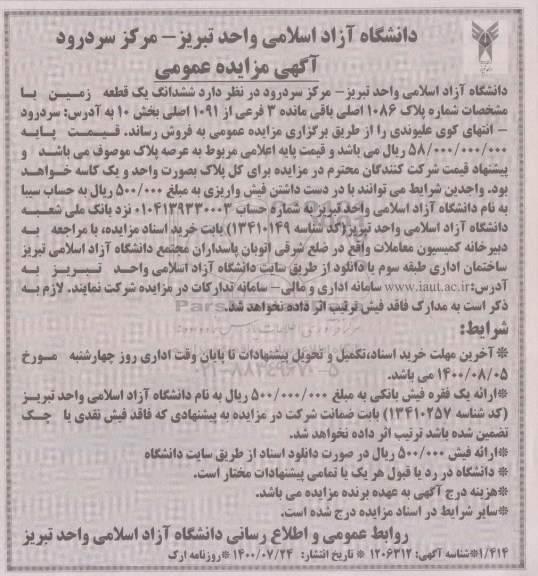 دانشگاه آزاد اسلامی واحد تبریز- مرکز سردرود
آگهی مزایده عمومی
دانشگاه آزاد اسلامی واحد تبریز- مرکز سردرود در نظر دارد ششدانگ یک قطعه زمین با
مشخصات شماره پلاک ۱۰۸۶ اصلی باقی مانده ۳ فرعی از ۱۰۹۱ اصلی بخش ۱۰ به آدرس: سردرود
- انتهای کوی علیوندی را از طریق برگزاری مزایده عمومی به فروش رساند. قیمت پایه
۵۸/۰۰۰/۰۰۰/۰۰۰ ریال می باشد و قیمت پایه اعلامی مربوط به عرصه پلاک موصوف می باشد و
پیشنهاد قیمت شرکت کنندگان محترم در مزایده برای کل پلاک بصورت واحد و یک کاسه خواهد
بود. واجدین شرایط می توانند با در دست داشتن فیش واریزی به مبلغ ۵۰۰/۰۰۰ ریال به حساب سیبا
به نام دانشگاه آزاد اسلامی واحد تبریز به شماره حساب ۰۱۰۴۱۳۹۳۳۰۰۰۳ نزد بانک ملی شعبه
دانشگاه آزاد اسلامی واحد تبریز(کد شناسه ۱۳۴۱۰۱۴۹) بابت خرید اسناد مزایده، با مراجعه به
دبیرخانه کمیسیون معاملات واقع در ضلع شرقی اتوبان پاسداران مجتمع دانشگاه آزاد اسلامی تبریز
ساختمان اداری طبقه سوم یا دانلود از طریق سایت دانشگاه آزاد اسلامی واحد تبریز به
آدرس:www.iaut.ac.ir سامانه اداری و مالی- سامانه تدارکات در مزایده شرکت نمایند. لازم به
ذکر است به مدارک فاقد فیش ترتیب اثر داده نخواهد شد.
شرایط:
* آخرین مهلت خرید اسناد،تکمیل و تحویل پیشنهادات تا پایان وقت اداری روز چهارشنبه مورخ
۱۴۰۰/۰۸/۰۵ می باشد.
*ارائه یک فقره فیش بانکی به مبلغ ۵۰۰/۰۰۰/۰۰۰ ریال به نام دانشگاه آزاد اسلامی واحد تبریز
(کد شناسه ۱۳۴۱۰۲۵۷) بابت ضمانت شرکت در مزایده به پیشنهادی که فاقد فیش نقدی یا چک
تضمین شده باشد ترتیب اثر داده نخواهد شد.
*ارائه فیش ۵۰۰/۰۰۰ ریال در صورت دانلود اسناد از طریق سایت دانشگاه
* دانشگاه در رد یا قبول هر یک یا تمامی پیشنهادات مختار است.
*هزینه درج آگهی به عهده برنده مزایده می باشد.
*سایر شرایط در اسناد مزایده درج شده است.
روابط عمومی و اطلاع رسانی دانشگاه آزاد اسلامی واحد تبریز
۱/۴۱۴*شناسه آگهی: ۱۲۰۶۳۱۲ * تاریخ انتشار: ۱۴۰۰/۰۷/۲۴ *روزنامه ارک